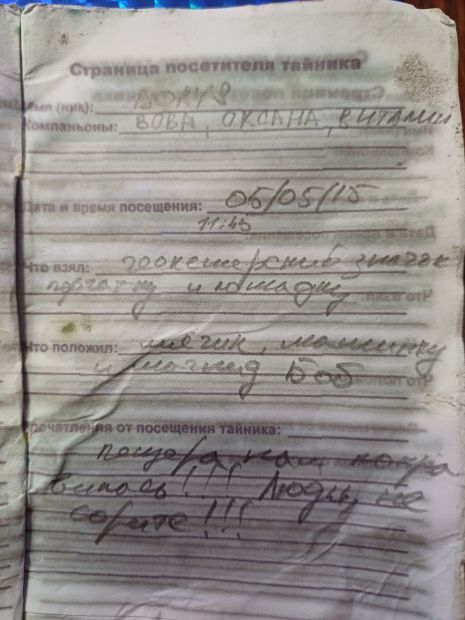 Страница посетителя тайника
Имя (ник):
Компаньоны: ВОВА, ОКСАНА, ВИТАЛИЙ
Дата и время посещения: 05/05/15
11:45
Что взял: геокешерский значок
и лошадку
Что положил: мячик, машинку
и Боб
печатления от посещения тайника:
пещера нам понра
вилась!!! Люди, не
сорите!!!